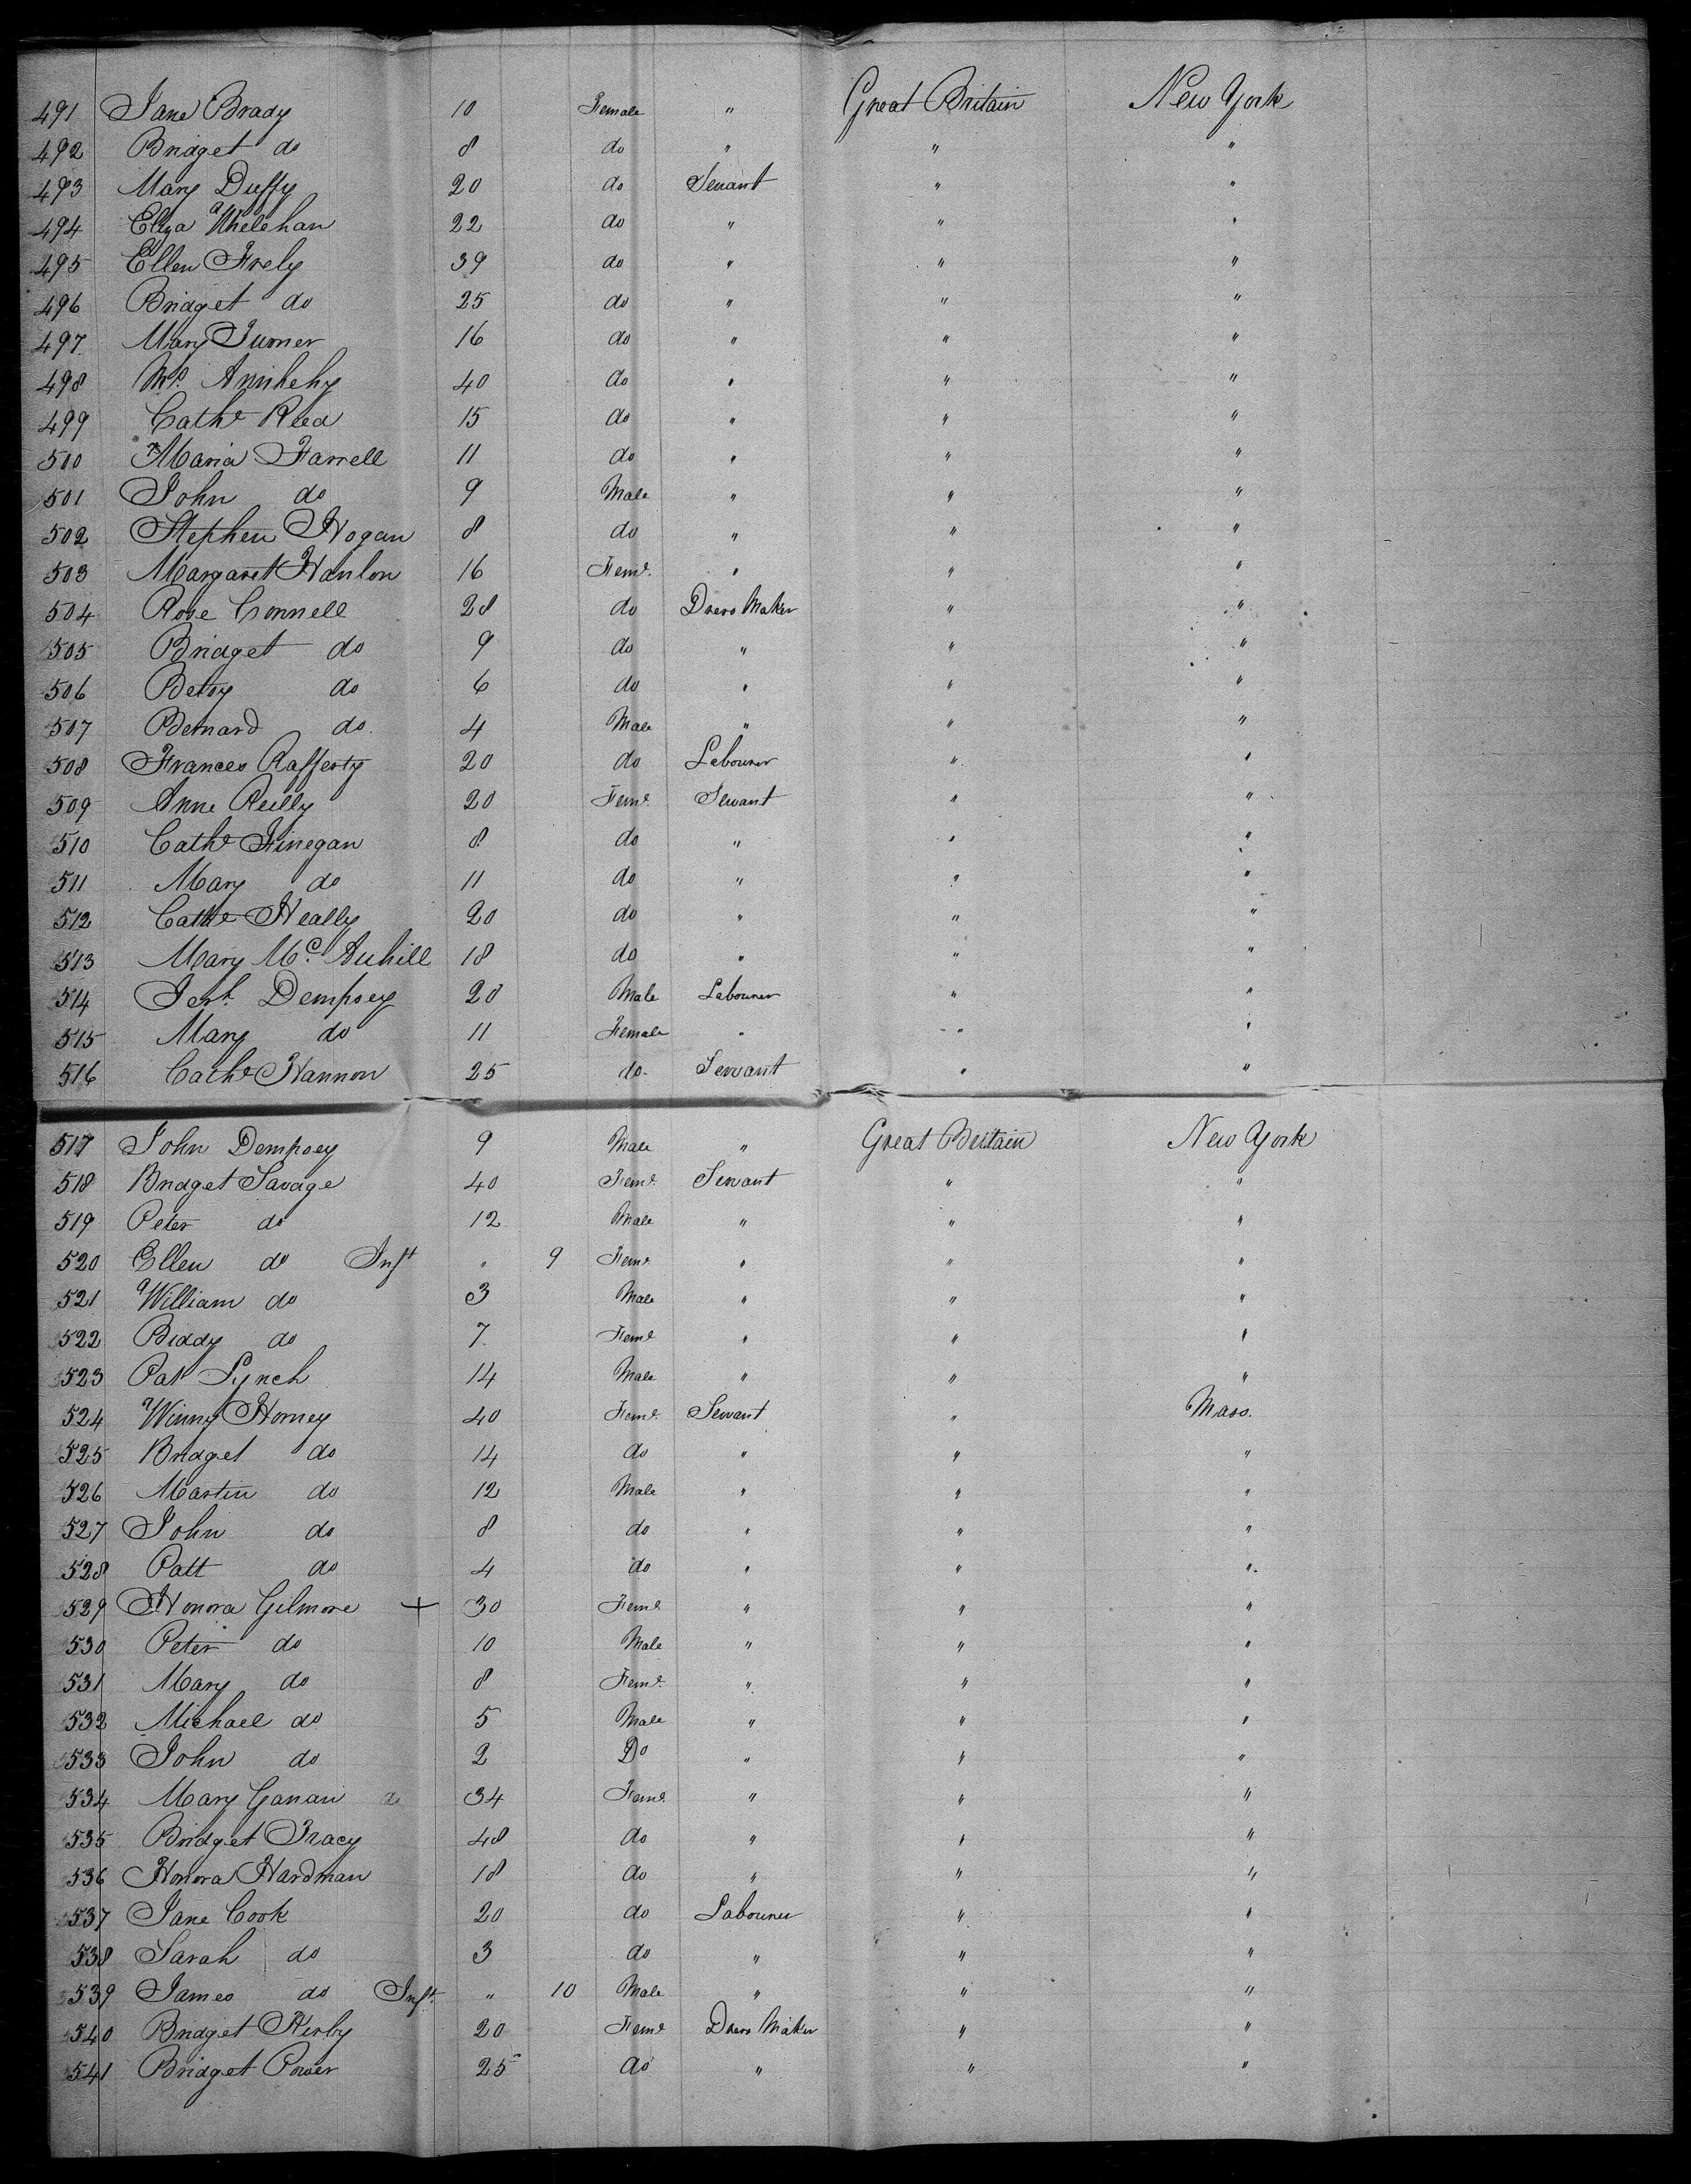 491 Jane Brady 10 Female " Great Britain New York
492 Bridget do 8 do " " "
493 Mary Duffy 20 do Servant " "
494 Eliza Whelehan 22 do " " "
495 Ellen Frely 39 do " " "
496 Bridget do 25 do " " "
497 Mary Turner 16 do " " "
498 40 do " " "
499 Cathe Reed 15 do " " "
500 Maria Farrell 11 do " " "
501 John do 9 Male " " "
502 Stephen Hogan 8 do " " "
503 Margaret Hanlon 16 Feme. " " "
504 Rose Connell 28 do Dress Maker " "
505 Bridget do 9 do " " "
506 Betsy do 6 do " " "
507 Bernard do 4 Male " " "
508 Frances Rafferty 20 do Labourer " "
509 Anne Reilly 20 Feme. Servant " "
510 Cathe Finegan 8 do " " "
511 Mary do 11 do " " "
512 Cathe Heally 20 do " " "
513 Mary Mc. 18 do " " "
514 Dempsey 20 Male Labourer " "
515 Mary do 11 Female " " "
516 Cathe Hannon 25 do Servant " "
517 John Dempsey 9 Male " Great Britain New York
518 Bridget Savage 40 Feme. Servant " "
519 Peter do 12 Male " " "
520 Ellen do Inft " 9 Feme " " "
521 William do 3 Male " " "
522 Biddy do 7 Feme " " "
523 Pat Lynch 14 Male " " "
524 Winny Horney 40 Feme. Servant " Mass.
525 Bridget do 14 do " " "
526 Martin do 12 Male " " "
527 John do 8 do " " "
528 Patt do 4 do " " "
529 Honora Gilmore + 30 Feme " " "
530 Peter do 10 Male " " "
531 Mary do 8 Feme. " " "
532 Michael do 5 Male " " "
533 John do 2 Do " " "
534 Mary Ganan 34 Feme. " " "
535 Bridget Tracy 48 do " " "
536 Honora Hardman 18 do " " "
537 Jane Cook 20 do Labourer " "
538 Sarah do 3 do " " "
539 James do Inft. " 10 Male " " "
540 Bridget Kirby 20 Feme Dress Maker " "
541 Bridget Power 25 do " " "